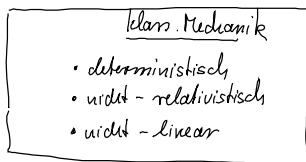 klass. Mechanik
• deterministisch
• nicht - relativistisch
• nicht - linear